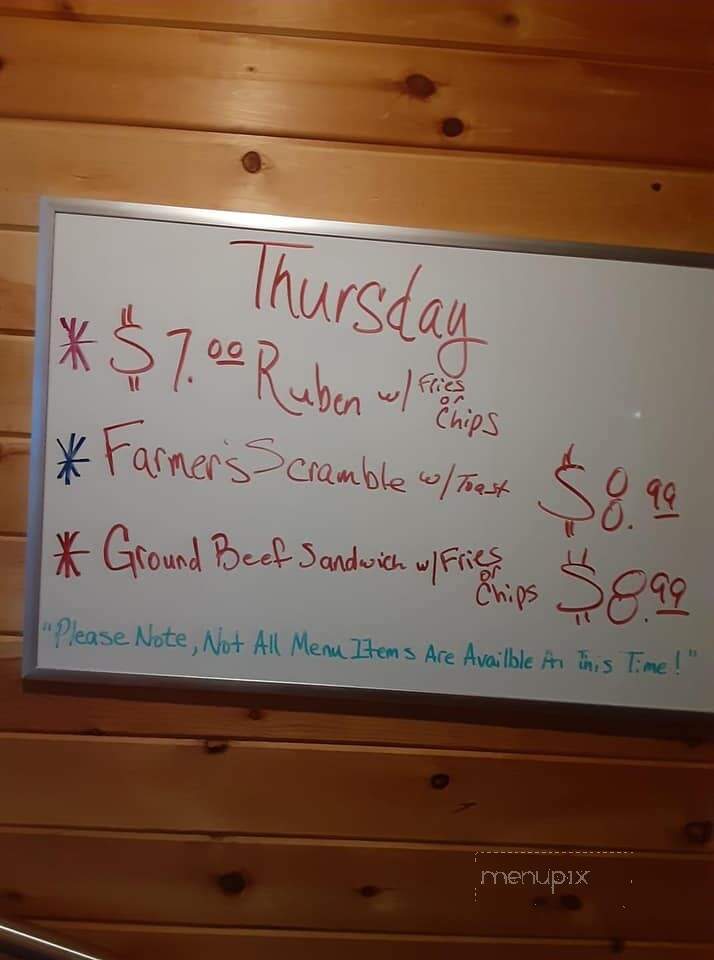 Thursday
* $7.00 Ruben w/ Fries or Chips
* Farmer's Scramble w/ Toast $8.99
* Ground Beef Sandwich w/ Fries or Chips $8.99
"Please Note, Not All Menu Items Are Availble At This Time!"
menupix